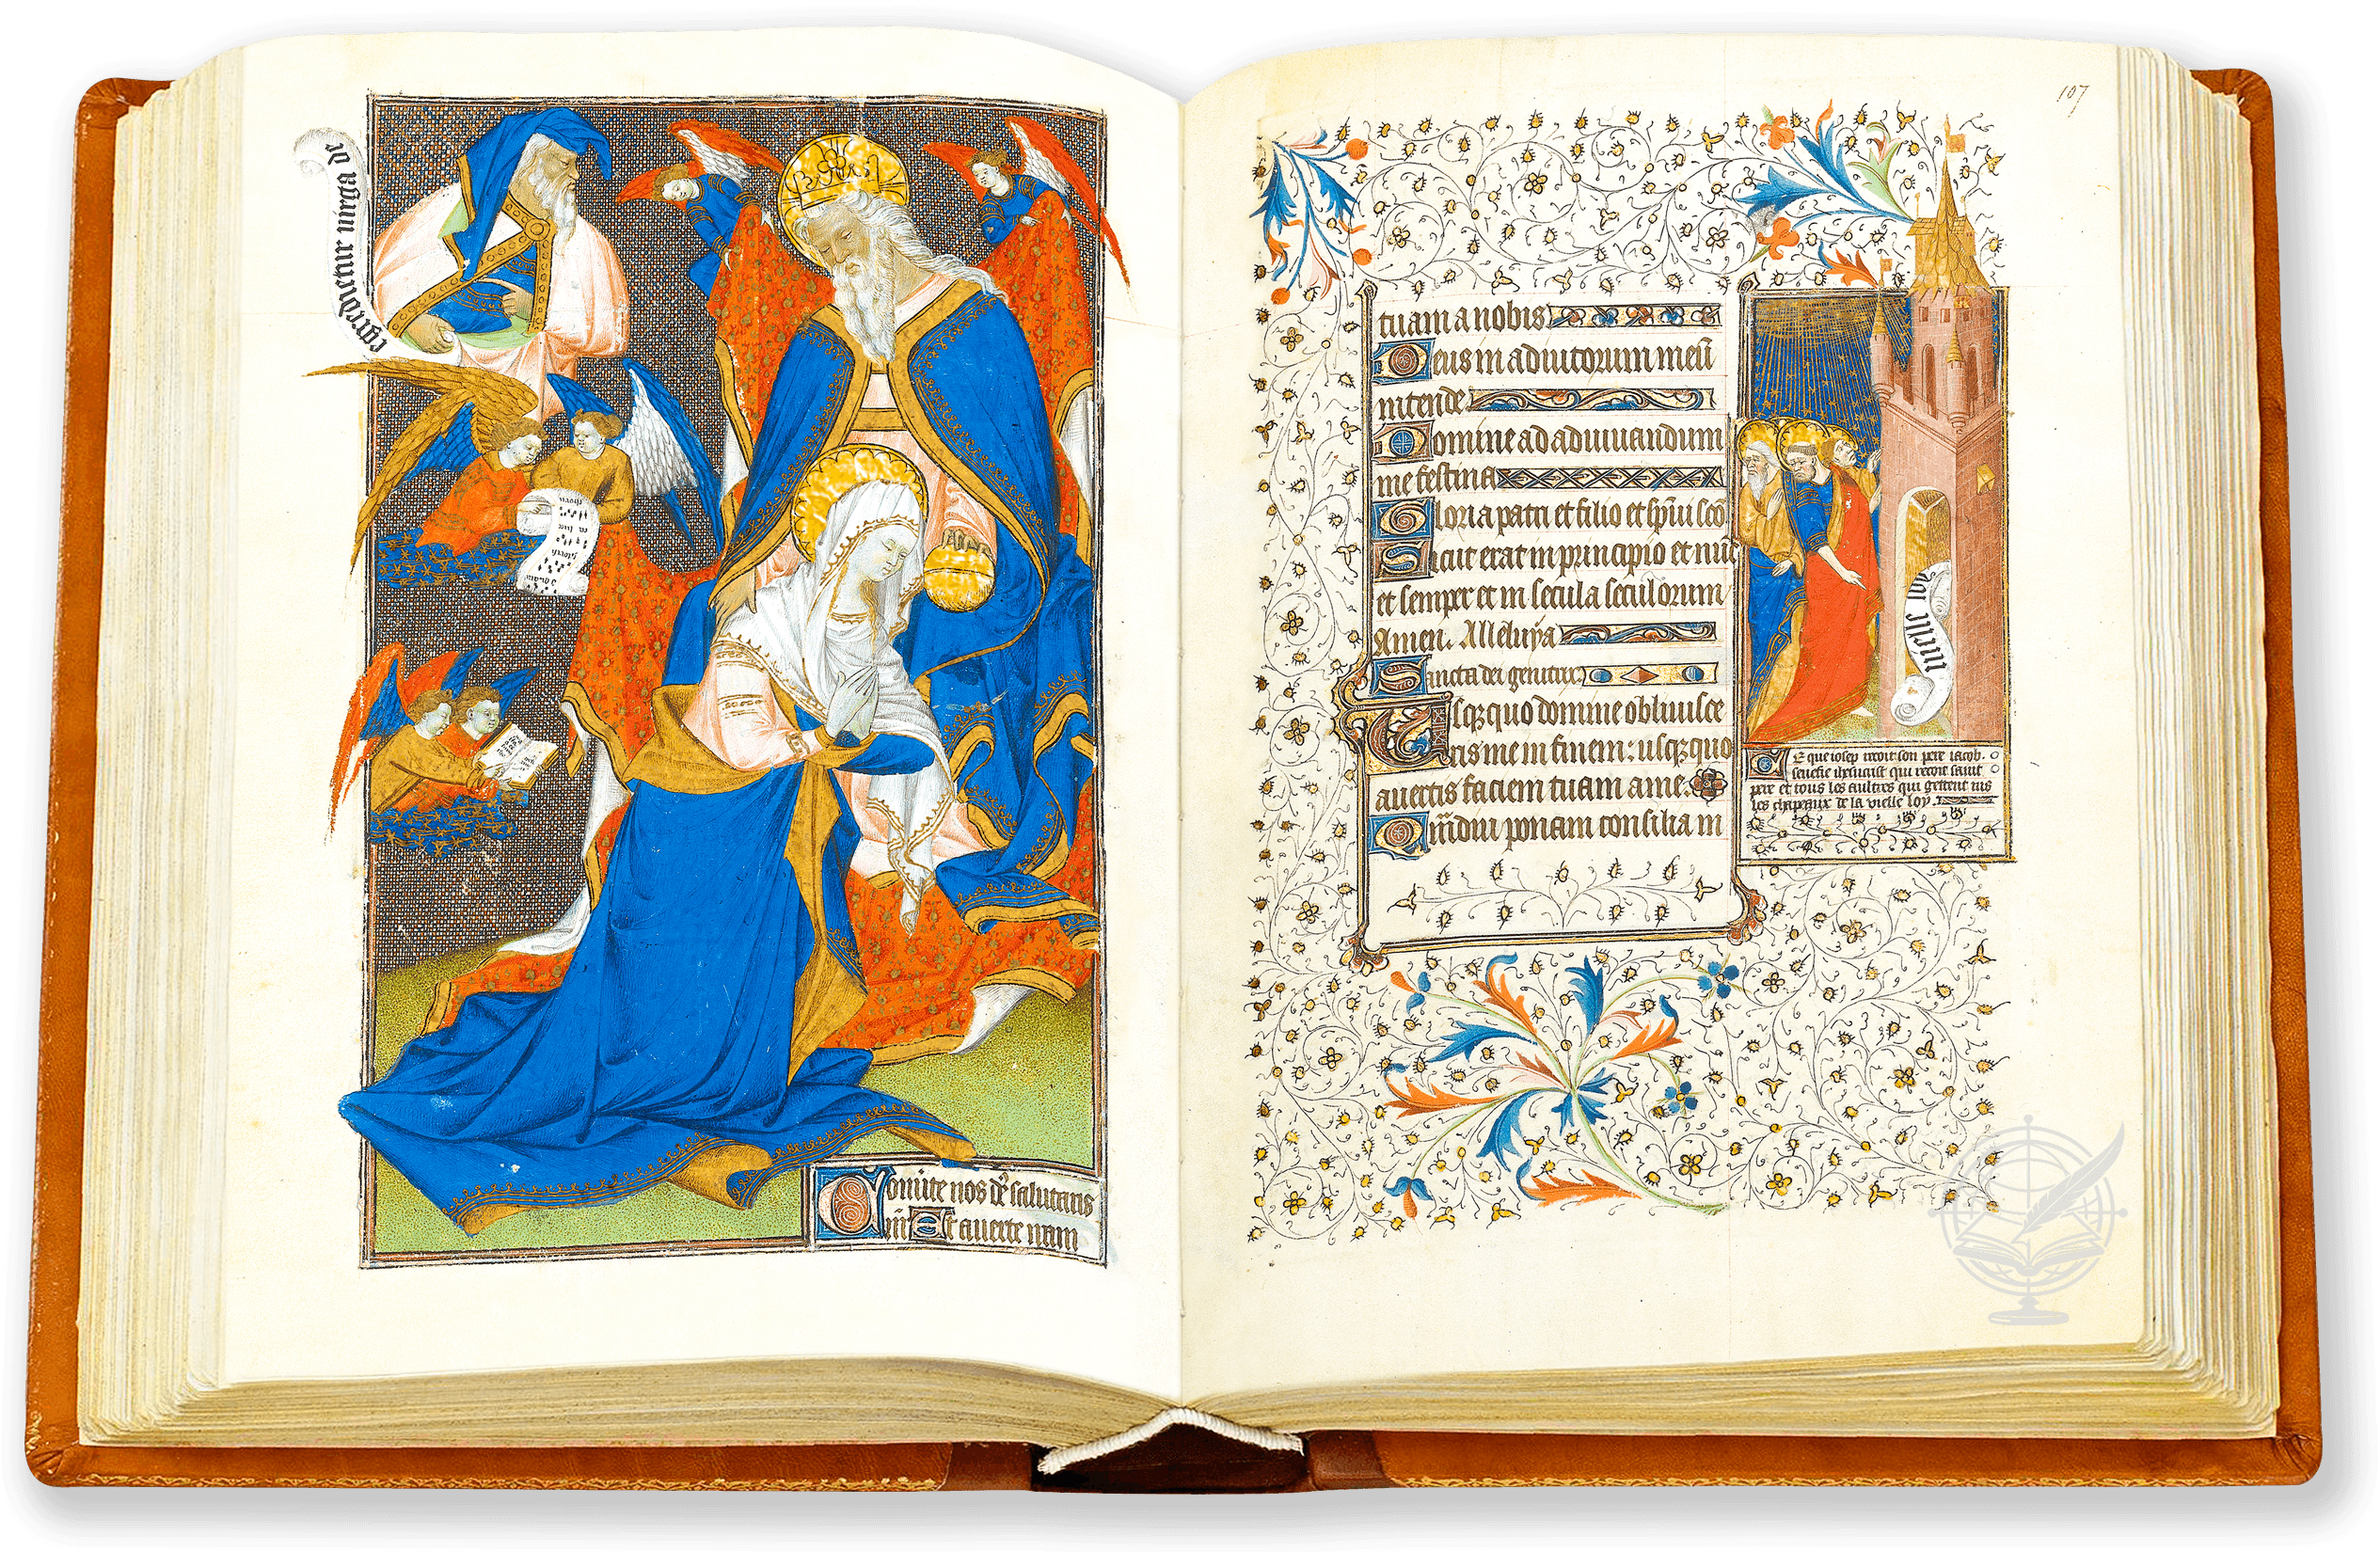 egredietur virga de
Comite nos d͞s salutaris
n͞r Et averte iram
107
tuam a nobis
Deus in adiutorium meu͞
intende
Domine ad adiuuandum
me festina
Gloria patri et filio et sp͞iui s͞co
Sicut erat in principio et nu͞c
et semper et in secula seculorum
Amen. Alleluya
Sancta dei genitrix
Vsqꝫquo domine obliuisce
ris me in finem: usqꝫquo
auertis faciem tuam a me.
Qua͞diu ponam consilia in
vielle loy
Ce que iosep recoit son pere iacob.
senefie qui recoit saint
pere et tous les aultres qui gettent ius
les chapeaux de la vielle loy.